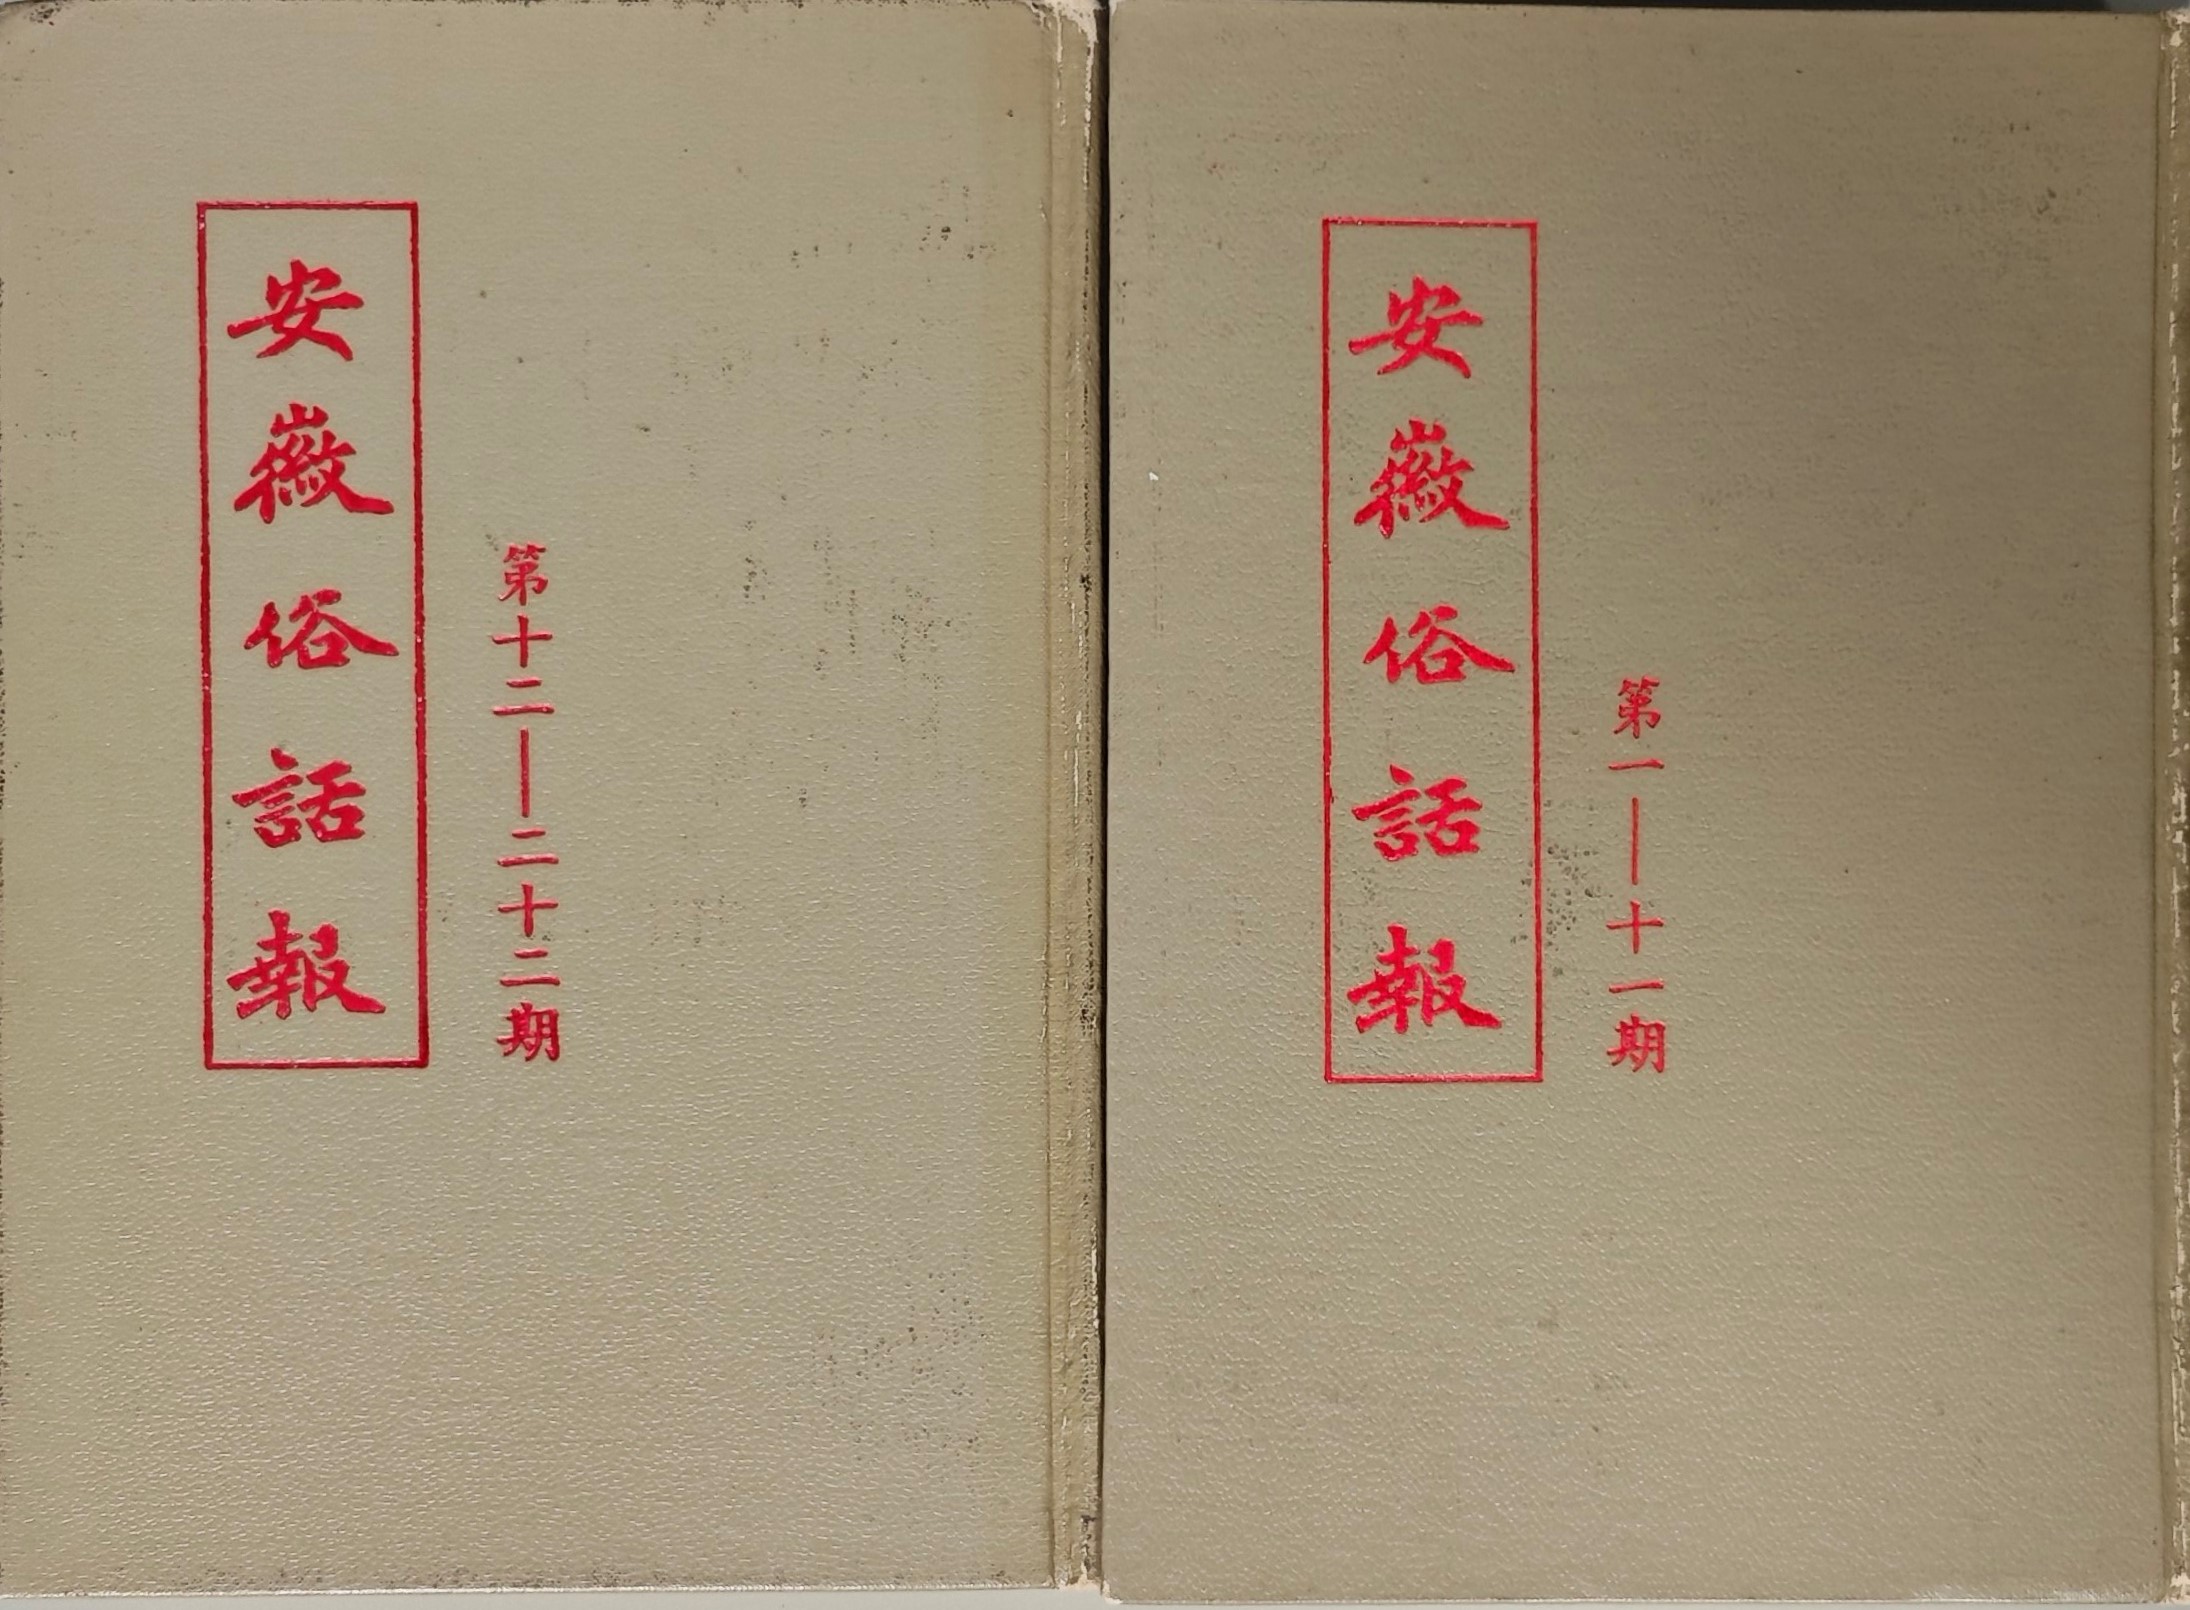 安徽俗話報
第一—十一期
安徽俗話報
第十二—二十二期